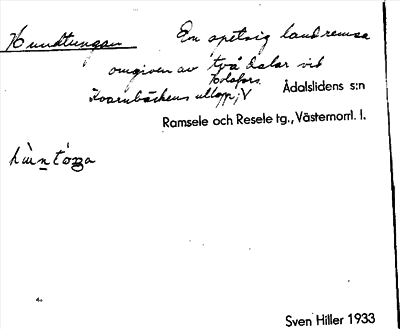 Hundtungan En spetsig landremsa
omgiven av två dalar vid
Kvarnbäckens utlopp; V
Ådalslidens s:n
Ramsele och Resele tg., Västernorrl. l.
Sven Hiller 1933